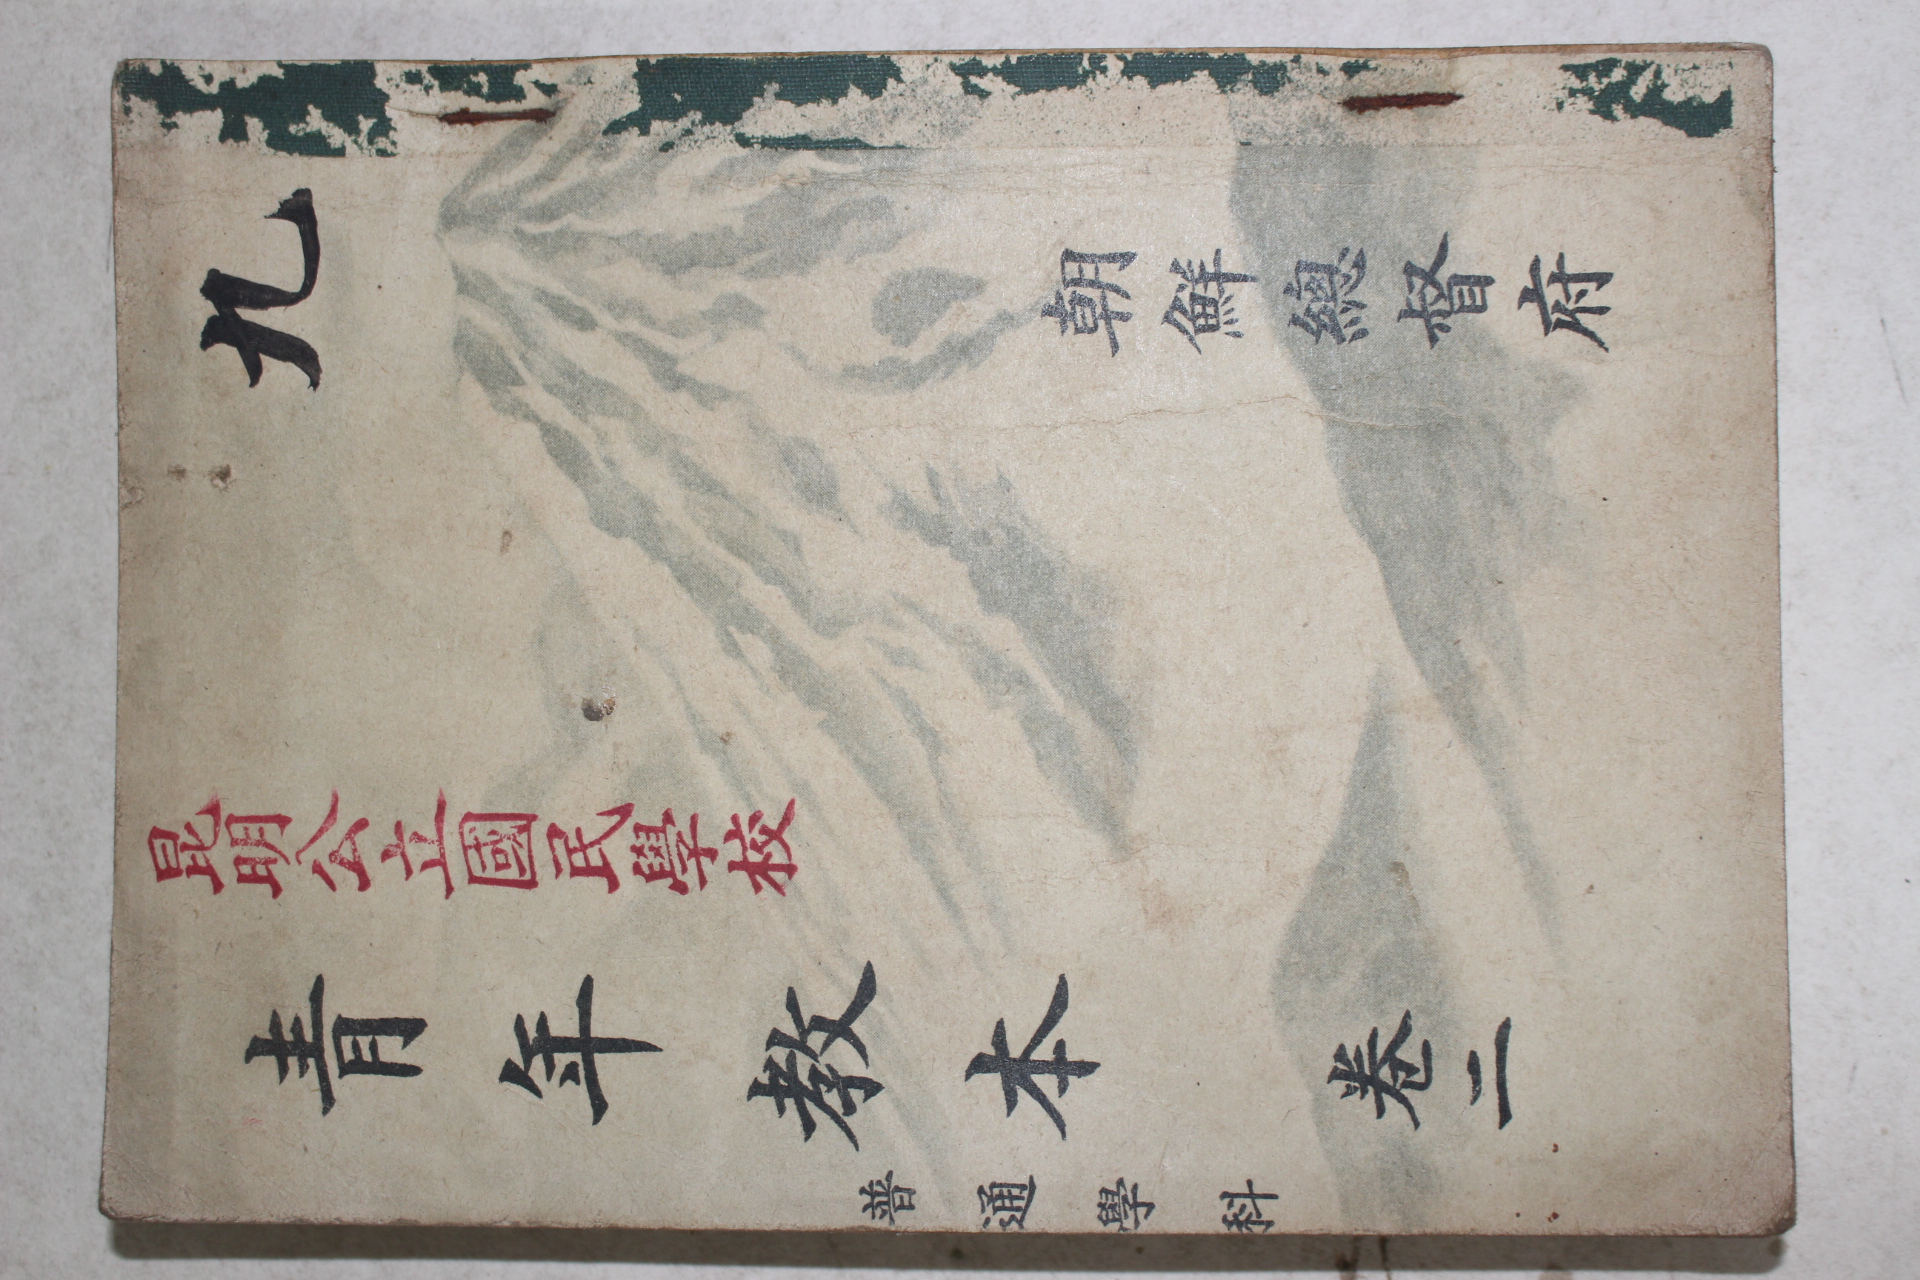 九
朝鮮總督府
昆明公立國民學校
青年教本 卷二
普通學科